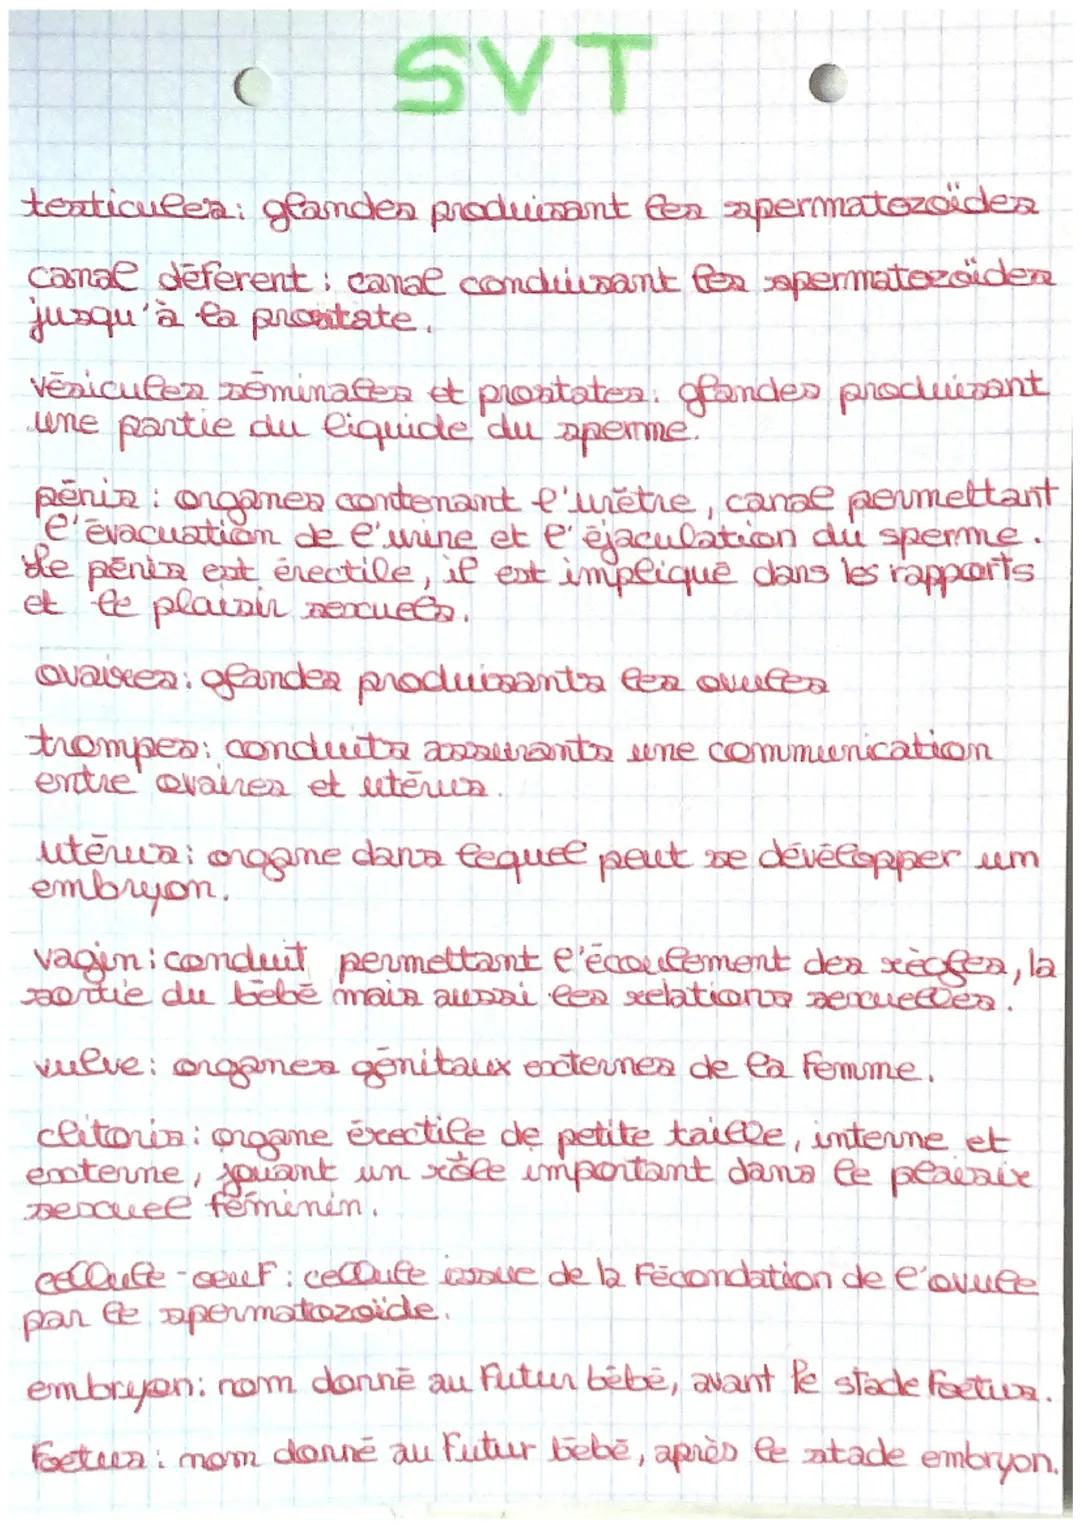 SVT
testicules: glandes produisant les spermatozoïdes
canal déferent : canal conduisant les spermatozoïdes
jusqu'à la prostate.
vésicules séminales et prostates: glandes produisant
une partie du liquide du sperme.
pénis : organes contenant l'urètre, canal permettant
l'évacuation de l'urine et l'éjaculation du sperme.
Le pénis est érectile, il est impliqué dans les rapports
et le plaisir sexuels.
ovaires: glandes produisants les ovules
trompes: conduits assurants une communication
entre ovaires et utérus.
utérus: organe dans lequel peut se développer um
embryon.
vagin: conduit permettant l'écoulement des règles, la
sortie du bébé mais aussi les relations sexuelles.
vulve: organes génitaux externes de la femme.
clitoris: organe érectile de petite taille, interne et
externe, jouant un rôle important dans le plaisir
sexuel féminin.
cellule-oeuf: cellule issue de la fécondation de l'ovule
par le spermatozoïde.
embryon: nom donné au futur bébé, avant le stade foetus.
foetus: nom donné au futur bébé, après le stade embryon.